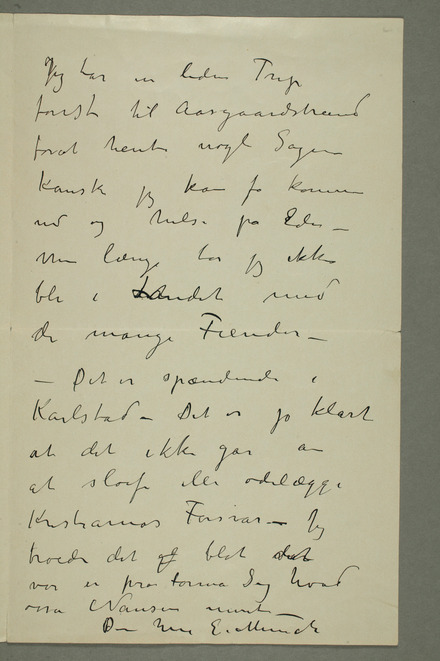 Jeg har en liden Trip
forest til Aasgaardstrand
forat hente nogle Sager
Kanske jeg kan få komme
ind og hilse på Eder –
Men længe tør jeg ikke
bli i Landet med
de mange Fiender –
– Det er spændende i
Karlstad – Det er jo klart
at det ikke går an
at sløife eller ødelægge
Kristianias Forsvar – Jeg
troede det blot
var en pro forma Sag hvad
også Nansen mente –
Din Ven E. Munch